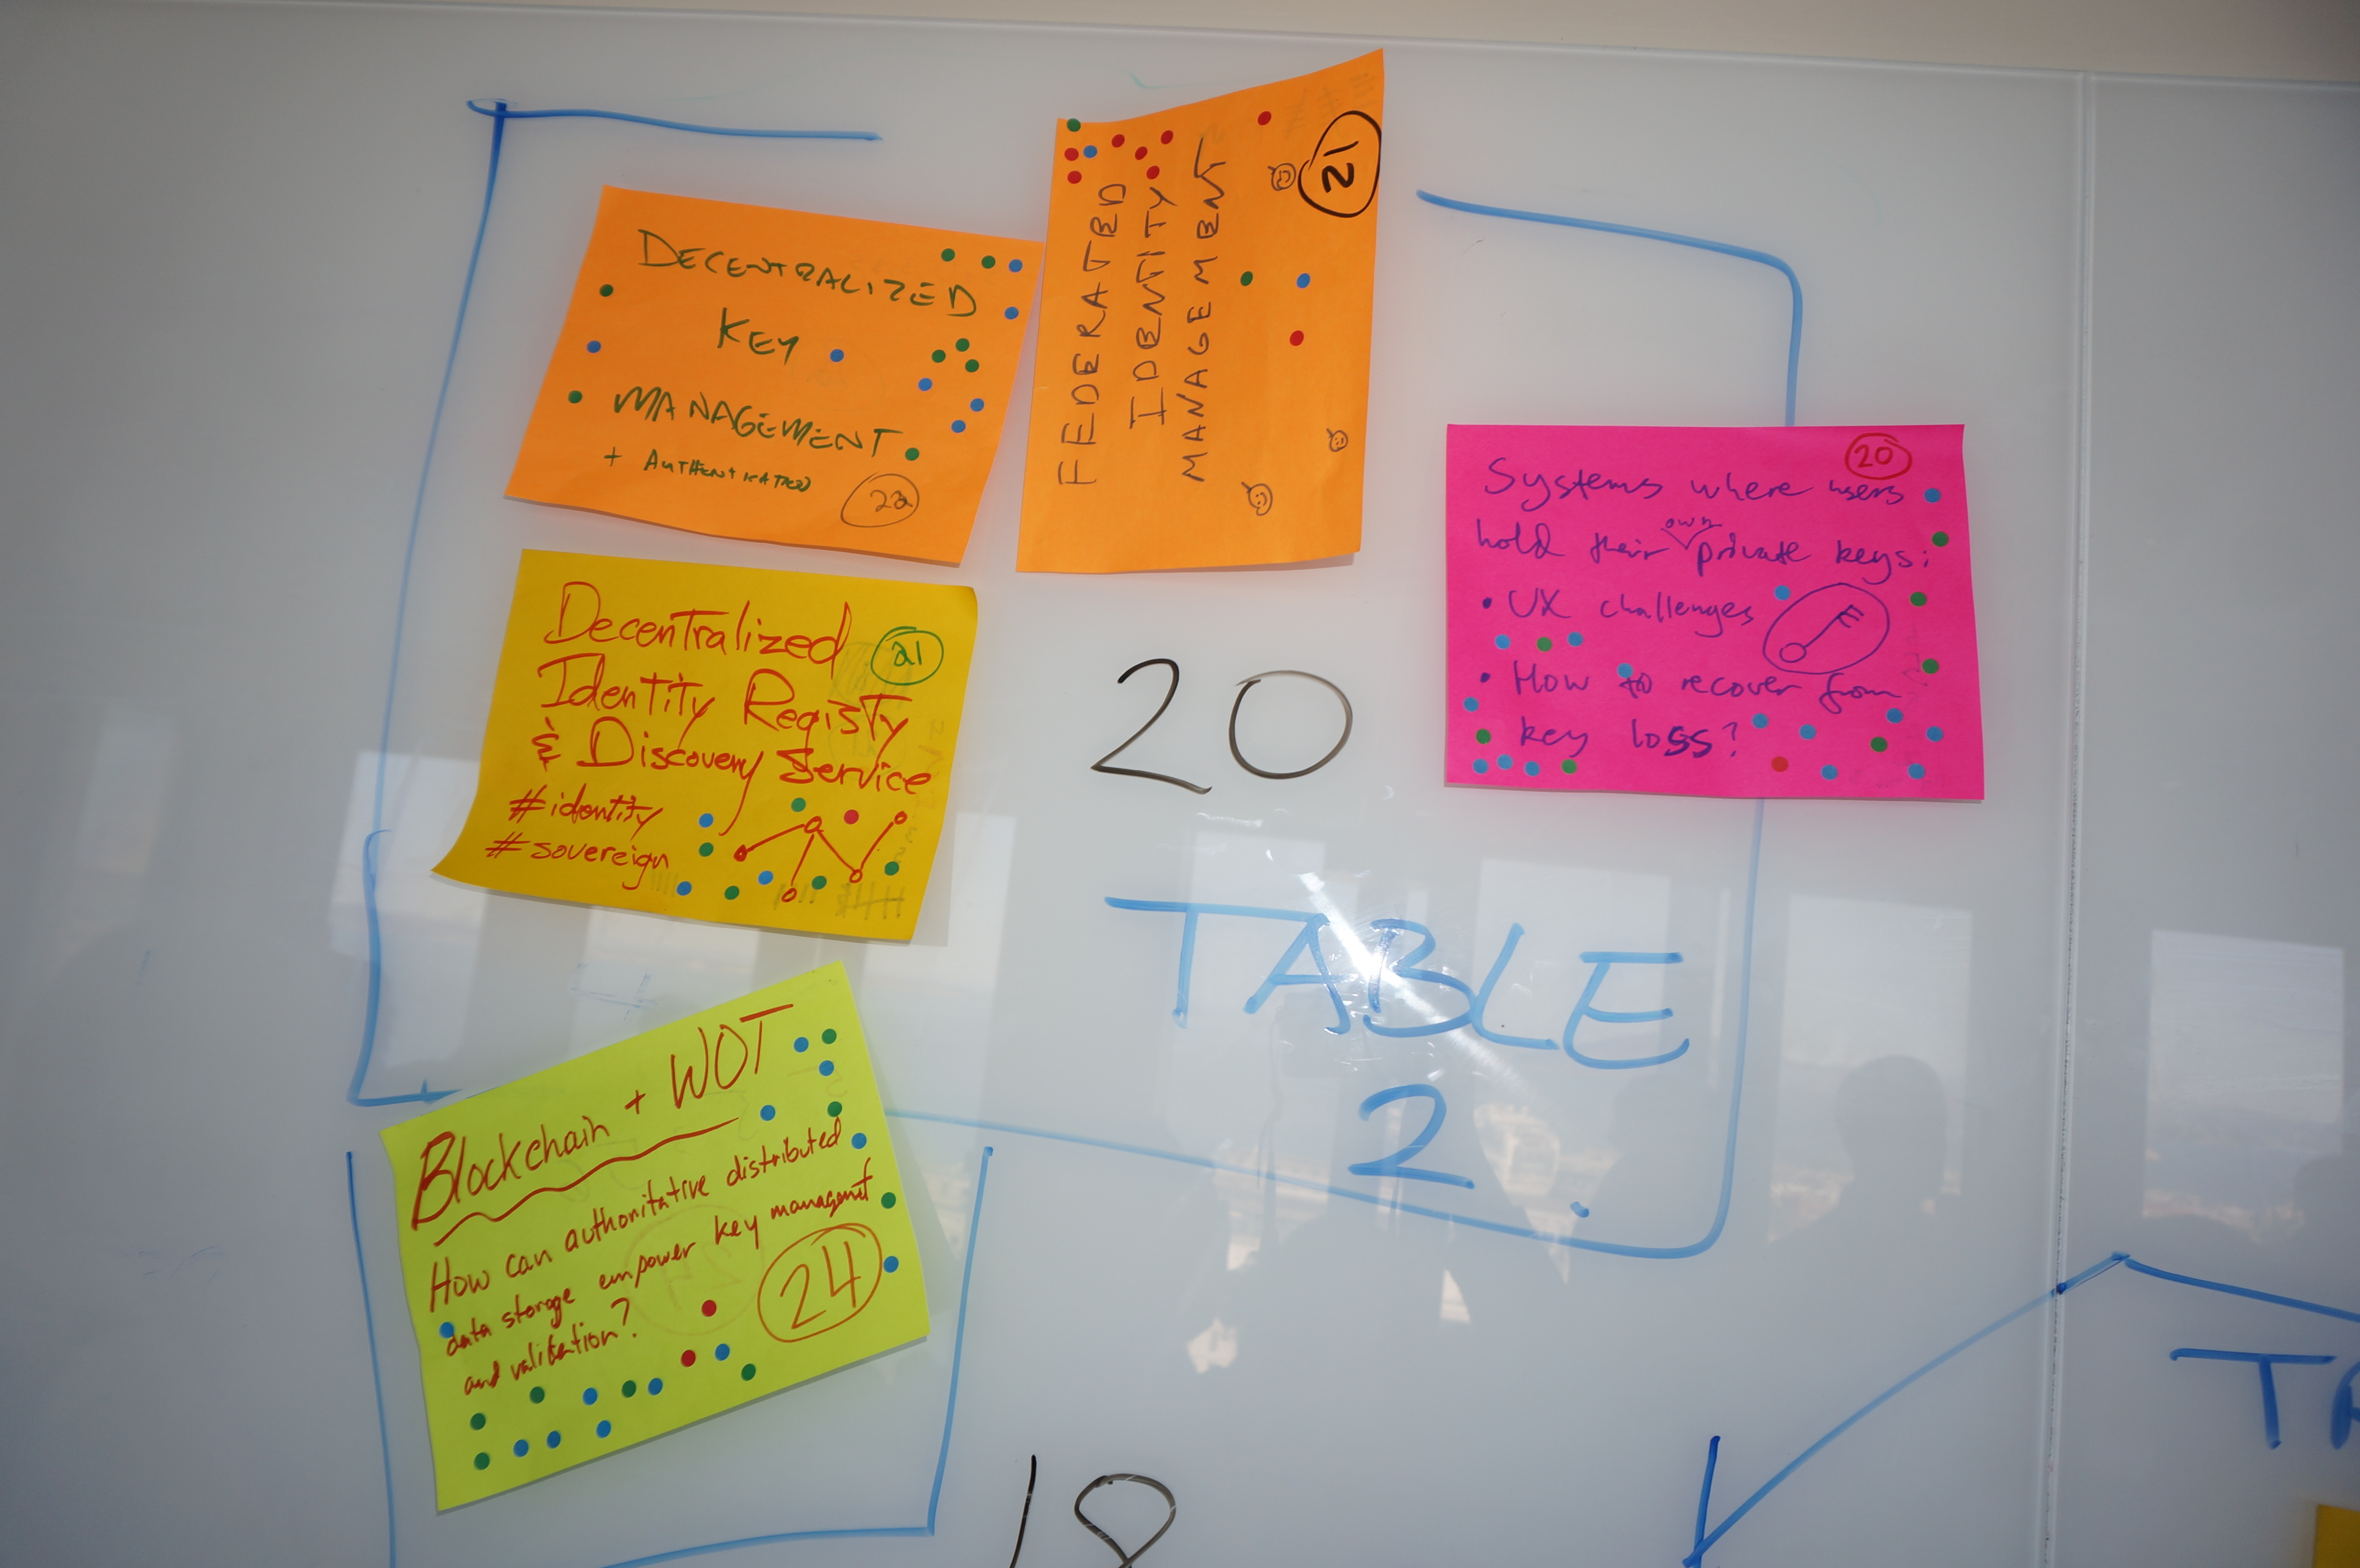 DECENTRALIZED
KEY
MANAGEMENT
+ AUTHENTICATION
22
FEDERATED
IDENTITY
MANAGEMENT
21
20
Systems where users
hold their own private keys:
• UX challenges
• How to recover from
key loss?
Decentralized
21
Identity Registy
& Discovery Service
#identity
#sovereign
20
TABLE
2
Blockchain + WOT
How can authoritative distributed
data storage empower key managemt
and valiation?
24
18